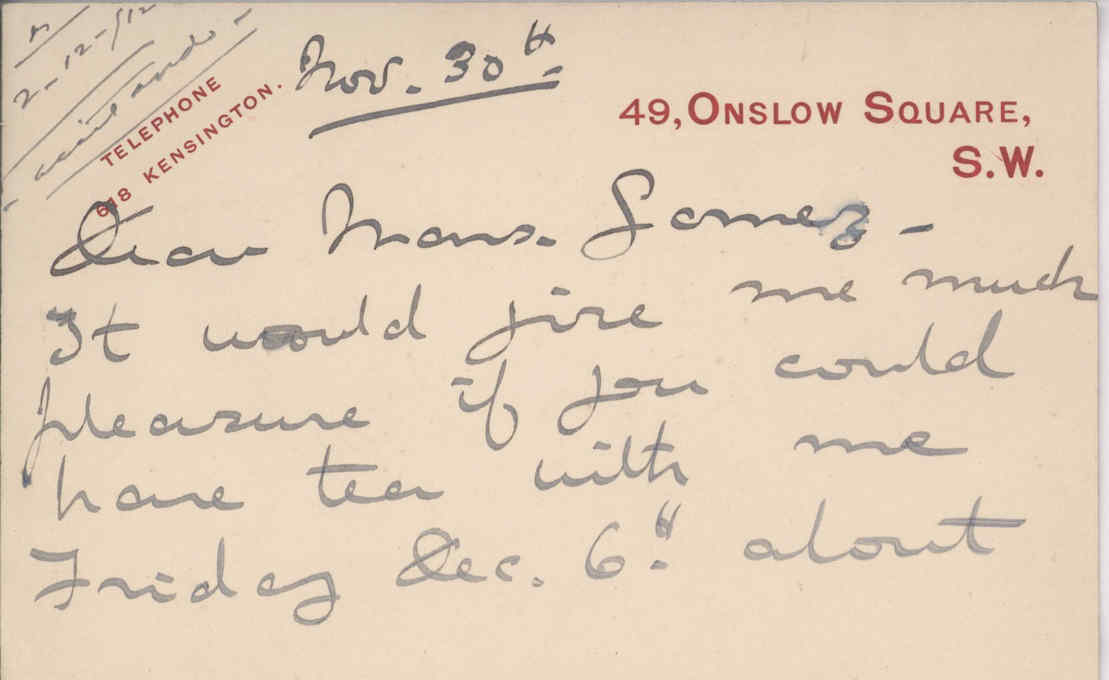 2-12-/12
TELEPHONE
618 KENSINGTON.
Nov. 30th
49, ONSLOW SQUARE,
S.W.
Dear Mons. Gomez -
It would give me much
pleasure if you could
have tea with me
Friday Dec. 6th about